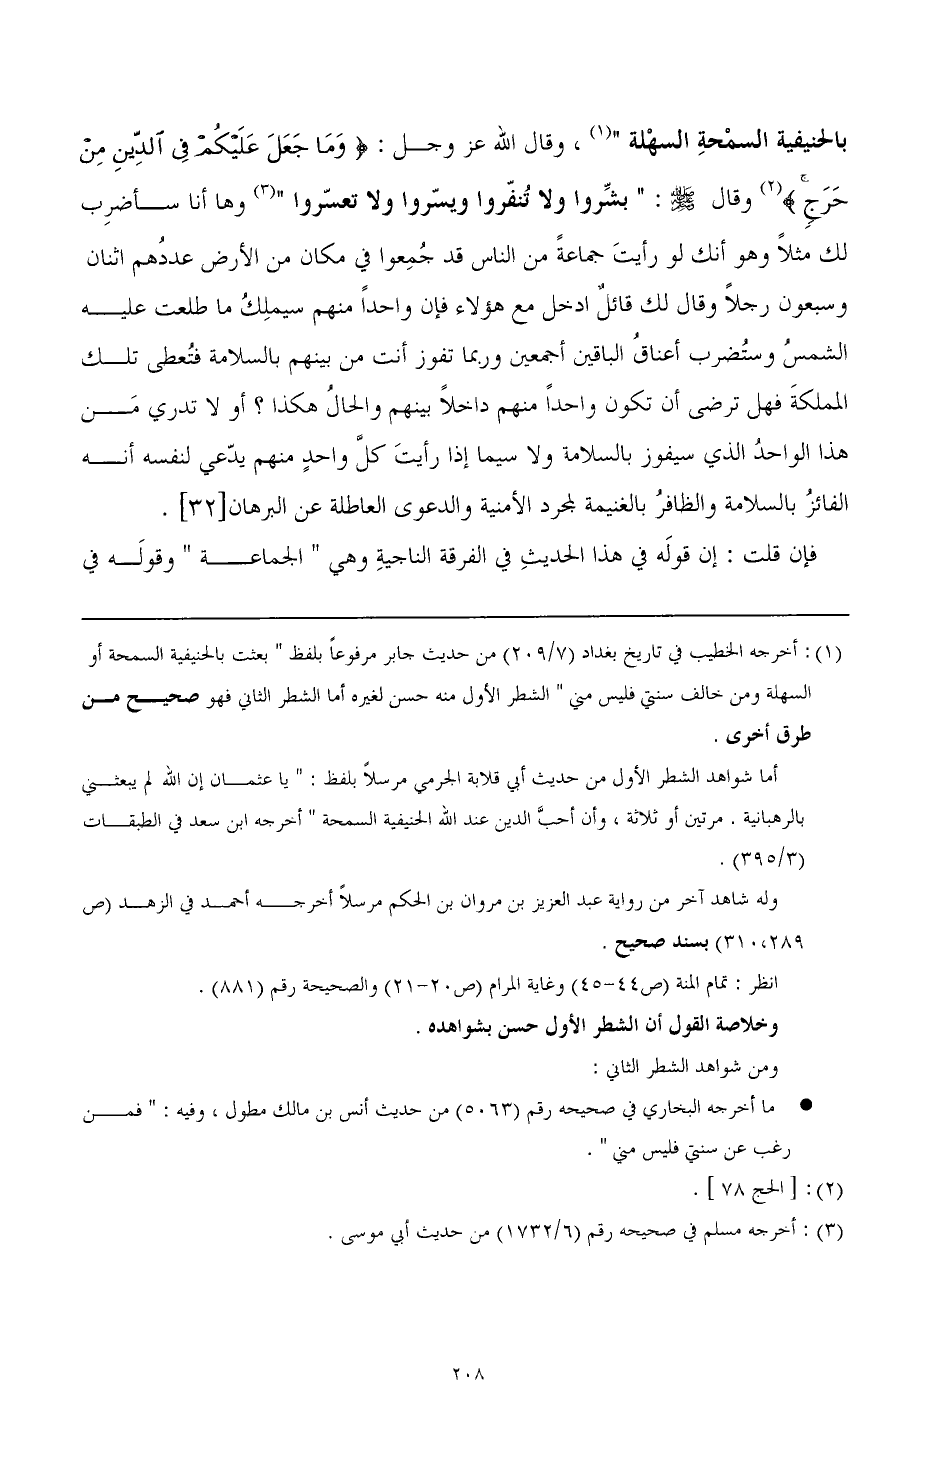 بالحنيفية السمْحةِ السهْلة "(١) ، وقال الله عز وجل : ﴿ وَمَا جَعَلَ عَلَيْكُمْ فِى ٱلدِّينِ مِنْ
حَرَجٍۚ ﴾(٢) وقال ﷺ : " بشِّروا ولا تُنفّروا ويسّروا ولا تعسّروا "(٣) وها أنا سأضرِب
لك مثلاً وهو أنك لو رأيتَ جماعةً من الناس قد جُمِعوا في مكان من الأرض عددُهم اثنان
وسبعون رجلاً وقال لك قائلٌ ادخل مع هؤلاء فإن واحداً منهم سيملِكُ ما طلعت عليه
الشمسُ وستُضرب أعناقُ الباقين أجمعين وربما تفوز أنت من بينهم بالسلامة فتُعطى تلك
المملكةَ فهل ترضى أن تكون واحداً منهم داخلاً بينهم والحالُ هكذا ؟ أو لا تدري مَن
هذا الواحدُ الذي سيفوز بالسلامة ولا سيما إذا رأيتَ كلَّ واحدٍ منهم يدّعي لنفسه أنه
الفائزُ بالسلامة والظافرُ بالغنيمة لمجرد الأمنية والدعوى العاطلة عن البرهان[٣٢] .
فإن قلت : إن قولَه في هذا الحديثِ في الفرقة الناجيةِ وهي " الجماعة " وقولَه في
(١) : أخرجه الخطيب في تاريخ بغداد (٢٠٩/٧) من حديث جابر مرفوعاً بلفظ " بعثت بالحنيفية السمحة أو
السهلة ومن خالف سنتي فليس مني " الشطر الأول منه حسن لغيره أما الشطر الثاني فهو صحيح من
طرق أخرى .
أما شواهد الشطر الأول من حديث أبي قلابة الجرمي مرسلاً بلفظ : " يا عثمان إن الله لم يبعثني
بالرهبانية . مرتين أو ثلاثة ، وأن أحبَّ الدين عند الله الحنيفية السمحة " أخرجه ابن سعد في الطبقات
(٣٩٥/٣) .
وله شاهد آخر من رواية عبد العزيز بن مروان بن الحكم مرسلاً أخرجه أحمد في الزهد (ص
٣١٠،٢٨٩) بسند صحيح .
انظر : تمام المنة (ص٤٤-٤٥) وغاية المرام (ص٢٠-٢١) والصحيحة رقم (٨٨١) .
وخلاصة القول أن الشطر الأول حسن بشواهده .
ومن شواهد الشطر الثاني :
● ما أخرجه البخاري في صحيحه رقم (٥٠٦٣) من حديث أنس بن مالك مطول ، وفيه : " فمن
رغب عن سنتي فليس مني " .
(٢) : [ الحج ٧٨ ] .
(٣) : أخرجه مسلم في صحيحه رقم (١٧٣٢/٦) من حديث أبي موسى .
٢٠٨